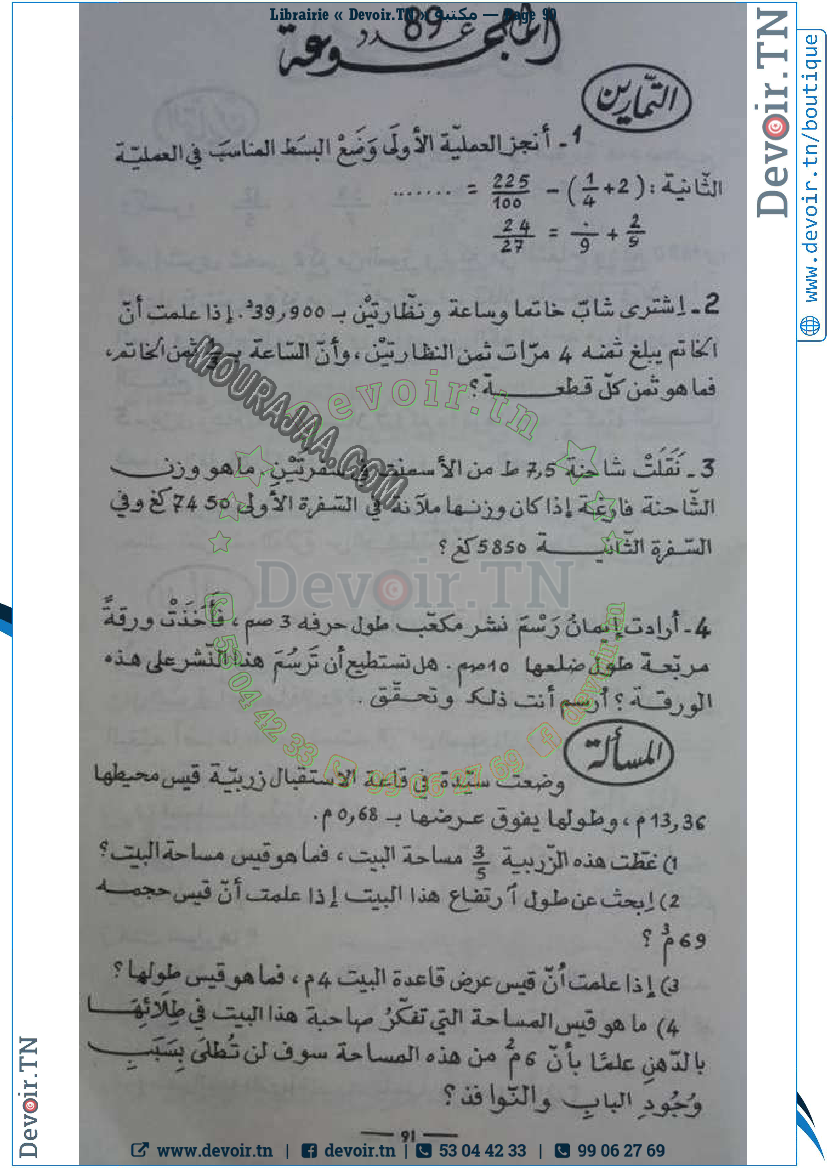 Librairie « Devoir.TN » مكتبة — Page 90
المجموعة عدد 89
التمارين
1 - أنجز العمليّة الأولَى وَضَعْ البسط المناسبَ في العمليّة
الثانية : (2 + 1/4) - 225/100 = .......
2/9 + ./9 = 24/27
2 - اِشترى شابّ خاتما وساعة ونظّارتيْن بـ 39,900د. إذا علمت أنّ
الخاتم يبلغ ثمنه 4 مرّات ثمن النظارتيْن، وأنّ السّاعة بـ ثمن الخاتم،
فما هو ثمن كلّ قطعـــة؟
3 - نَقَلَتْ شاحنة 7,5 ط من الأسمنت في سفرتَيْنِ. ما هو وزن
الشّاحنة فارغة إذا كان وزنها ملآنة في السّفرة الأولى 7450 كغ وفي
السّفرة الثّانيـــة 5850 كغ؟
4 - أرادت إيمانُ رَسْمَ نشر مكعّب طول حرفه 3 صم، فَأَخَذَتْ ورقةً
مربّعة طول ضلعها 10 صم. هل تستطيع أن تَرسُمَ هذا النّشر على هذه
الورقة؟ أرسم أنت ذلك وتحقّق.
المسألة
وضعت سيّدة في قاعة الاستقبال زربيّة قيس محيطها
13,36 م، وطولها يفوق عرضها بـ 0,68 م.
1) غطّت هذه الزّربية 3/5 مساحة البيت، فما هو قيس مساحة البيت؟
2) اِبحث عن طول ارتفاع هذا البيت إذا علمت أنّ قيس حجمه
69 م³ ؟
3) إذا علمت أنّ قيس عرض قاعدة البيت 4 م، فما هو قيس طولها؟
4) ما هو قيس المساحة التي تفكّرُ صاحبة هذا البيت في طِلَائِهَا
بالدّهنِ علمًا بأنّ 6 م² من هذه المساحة سوف لن تُطلَى بِسَبَبِ
وُجُودِ البابِ والنّوافذ؟
— 91 —
www.devoir.tn | devoir.tn | 53 04 42 33 | 99 06 27 69
Devoir.TN
www.devoir.tn/boutique
Devoir.TN
MOURAJAA.COM
Devoir.tn
Devoir.TN
53 04 42 33 99 06 27 69 devoir.tn